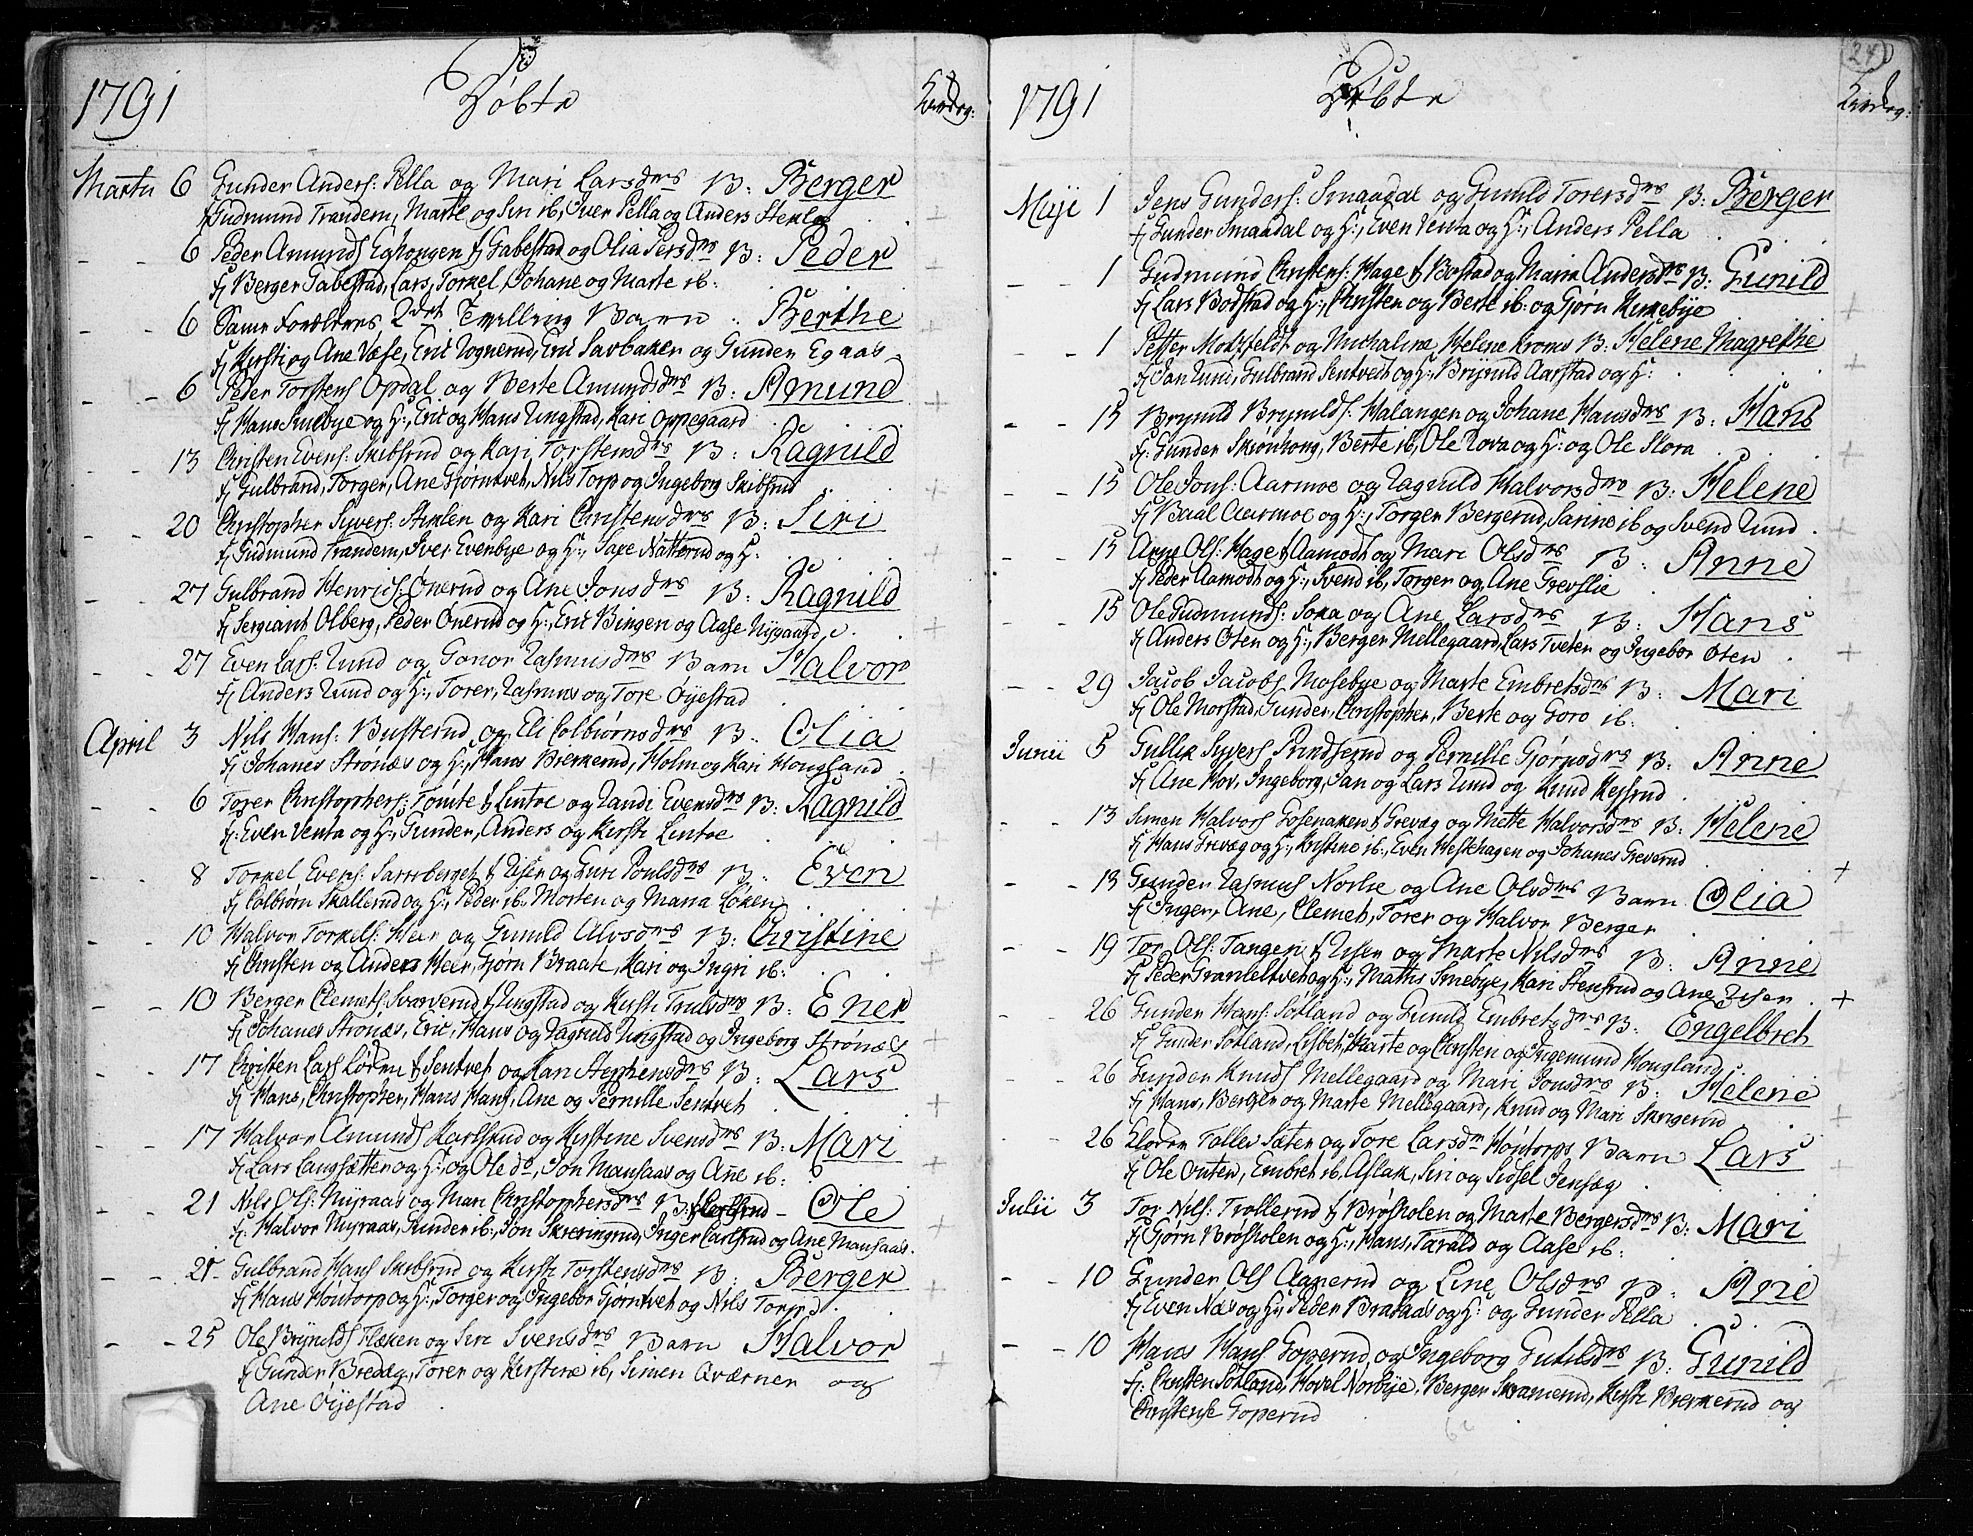 1791 Døbte
Martii 6 Gunder Anders: Pella og Mari Larsdrs B: Berger
fj Gudmund Trandem, Marte og Siri ib, Iver Pella og Anders Stenløs
- - 6 Peder Amunds Eghougen f Gabestad og Olia Persdrs B: Peder
fj Berger Gabestad, Lars, Torkel, Johane og Marte ib:
- - 6 Samme Forældres 2det Tvilling Barn Berthe
fj Kersti og Ane Væse, Eric Rognerud, Eric Sarbaken og Gunder Egaas
- - 6 Peder Torstens Opdal og Berte Amundsdrs B: Amund
fj Hans Smebye og H:, Eric og Hans Ungstad, Kari Oppegaard
- - 13 Christen Evens: Skibsrud og Kari Torstensdrs B: Ragnild
fj Gulbrand, Torger, Ane Gjørntvet, Nils Torp og Ingeborg Skibsrud
- - 20 Christopher Syvers: Stenlen og Kari Christensdrs B: Siri
fj Gudmund Trandem, Iver Evenbye og H:, Saxe Natterud og H:
- - 27 Gulbrand Henrics: Onerud og Ane Jonsdrs B: Ragnild
fj Sergiant Olberg, Peder Onerud og H:, Eric Bingen og Aase Nygaard
- - 27 Even Lars: Lund og Gonor Rasmusdrs Barn Halvor
fj Anders Lund og H:, Torer, Rasmus og Tore Øyestad
April 3 Nils Hans: Busterud og Eli Colbiørnsdrs B: Olia
fj Johanes Strønæs og H:, Hans Bierkerud, Holm og Kari Hougland
- - 6 Torer Christophers: Tomte f Lintoe og Randi Evensdrs B: Ragnild
fj: Even Venta og H:, Gunder, Anders og Kersti Lintoe
- - 8 Torkel Evens: Sarreberget f Risen og Guri Poulsdrs B: Even
fj Colbiørn Skallerud og H:, Peder ib, Morten og Maria Løken
- - 10 Halvor Torkels: Heer og Gunild Alvsdrs B: Christine
fj Christen og Anders Heer, Gjørn Braate, Kari og Ingri ib:
- - 10 Berger Clemets: Svarverud f Ungstad og Kersti Trulsdrs B: Ener
fj Johanes Strønæs, Eric, Hans og Ragnild Ungstad og Ingeborg Strønæs
- - 17 Christen Lars Lørdru f Sentvet og Kari Stephensdrs B: Lars
fj Hans, Christopher, Hans Hans, Ane og Pernille Sentvet
- - 17 Halvor Amunds Karlsrud og Kirstine Svensdrs B: Mari
fj Lars Langsætter og H:, og Ole do, Jon Mansaas og Ane ib:
- - 21 Nils Ols: Nyraas og Mari Christophersdrs B: f Karlsrud - Ole
fj. Halvor Nyraas, Gunder ib, Jon Skreringrud, Inger Carlsrud og Ane Mansaas.
- - 21 Gulbrand Hans Skibsrud og Kersti Torstensdrs B: Berger
fj Hans Houtorp og H:, Torger og Ingebor Gjørntvet og Nils Torp
- - 25 Ole Brynilds Flæken og Siri Svensdrs Barn Halvor
fj Gunder Bredæg, Torer og Kerstine ib, Simen Aværner og
Ane Øyestad
1791 Døbte 24
Maji 1 Jens Gunders: Smaadal og Gunild Torersdrs B: Berger
fj Gunder Smaadal og H:, Even Venta og H:, Anders Pella
- - 1 Gudmund Christens: Hage f Bostad og Maria Andersdrs B: Gunild
fj Lars Bodstad og H:, Christen og Berte ib: og Gjørn Kirkebye
- - 1 Petter Motzfeldt og Michaline Helene Kroms B: Helene Magrethe
fj Jan Lund, Gulbrand Sentvedt og H:, Brynild Aarstad og H:
- - 15 Brynild Brynilds: Malangen og Johane Hansdrs B: Hans
fj: Gunder Skrønhong, Berte ib, Ole Rova og H: og Ole Slora
- - 15 Ole Jons: Aarmoe og Ragnild Halvorsdrs B: Helene
fj Baal Aarmoe og H:, Torger Bergerud, Sarine ib og Svend Lund
- - 15 Arne Ols: Hage f Aamodt og Mari Olsdrs B: Anne
fj Peder Aamodt og H:, Svend ib, Torger og Ane Grevslie
- - 15 Ole Gudmunds: Soxa og Ane Larsdrs B: Hans
fj Anders Oten og H:, Berger Mellegaard, Lars Tveten og Ingebor Oten
- - 29 Jacob Jacobs Mosebye og Marte Embretsdrs B: Mari
fj Ole Morstad, Gunder, Christopher, Berte og Goro ib:
Junii 5 Gullik Syvers Prindserud og Pernille Gjørnsdrs B: Anne
fj Ane Hov, Ingeborg, Jan og Lars Lund og Knud Kessrud
- - 13 Simen Halvors Gosenaken f Grevæg og Mette Halvorsdrs B: Helene
fj Hans Grevæg og H:, Kristine ib:, Even Westhagen og Johanes Greverud
- - 13 Gunder Rasmus Norbe og Ane Olsdrs Barn Olia
fj Inger, Ane, Clemet, Torer og Halvor Berger
- - 19 Tor Ols: Tangen f Risen og Marte Nilsdrs B: Anne
fj Peder Granleltvet og H:, Mathis Smebye, Kari Stensrud og Ane Risen
- - 26 Gunder Hans: Sotland og Gunild Embretsdrs B: Engelbret
fj Gunder Sotland, Lisbet, Marte og Christen og Ingemund Hougland
- - 26 Gunder Knuds Mellegaard og Mari Jonsdrs B: Helene
fj Hans, Berger og Marte Mellegaard, Knud og Mari Skrigerud
- - 26 Tollev Sæter og Tore Larsdr Houtorps Barn Lars
fj Ole Outen, Embret ib, Aslak, Siri og Sidsel Jensæg
Julii 3 Tor Nils: Trollerud f Brøsholen og Marte Bergersdrs B: Mari
fj Gjørn Brøsholen og H:, Hans, Tarald og Aase ib:
- - 10 Gunder Ols Aanerud og Line Olsdrs B: Anne
fj Even Næs og H:, Peder Brataas og H: og Gunder Pella
- - 10 Hans Hans Goperud og Ingeborg Gulilsdrs B: Gunild
fj: Christen Sotland, Hovel Norbye, Berger Skramerud, Kersti Bierkerud og
Christense Goperud